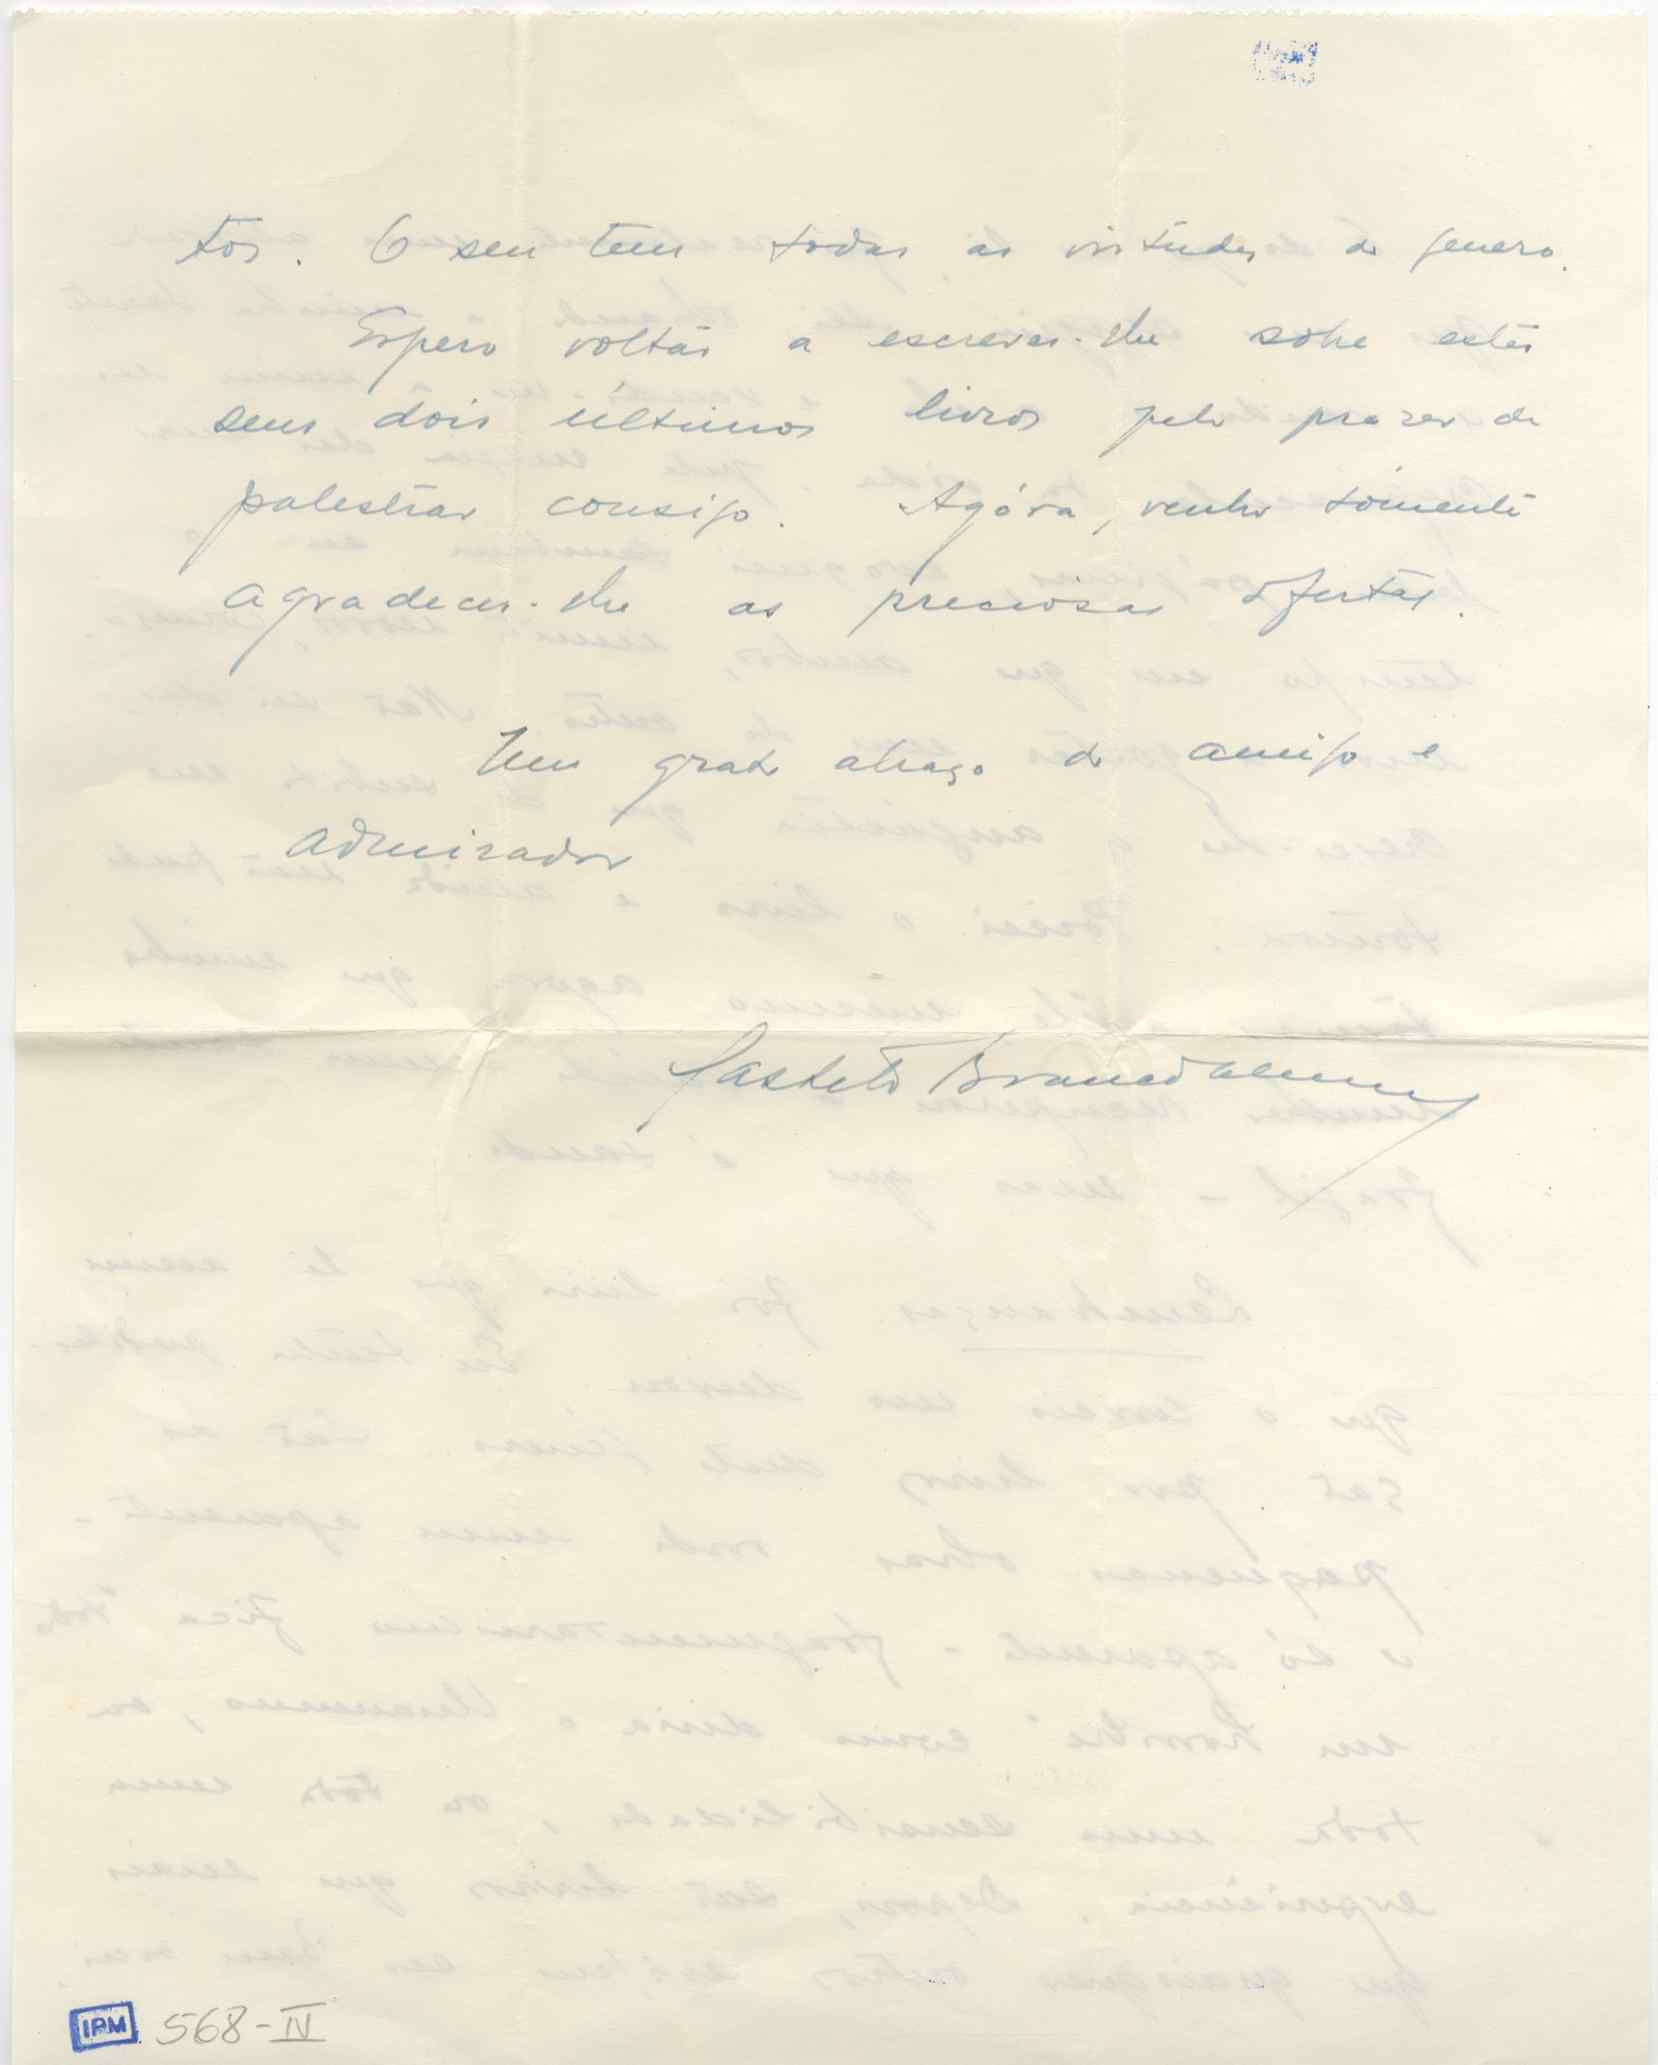 tos. O seu tem todas as virtudes do genero.
Espero voltar a escrever-lhe sobre estes
seus dois últimos livros pelo prazer de
palestrar consigo. Agóra, venho sómente
agradecer-lhe as preciosas ofertas.
Um grato abraço do amigo e
admirador
Castelo Branco
IPM 568-IV